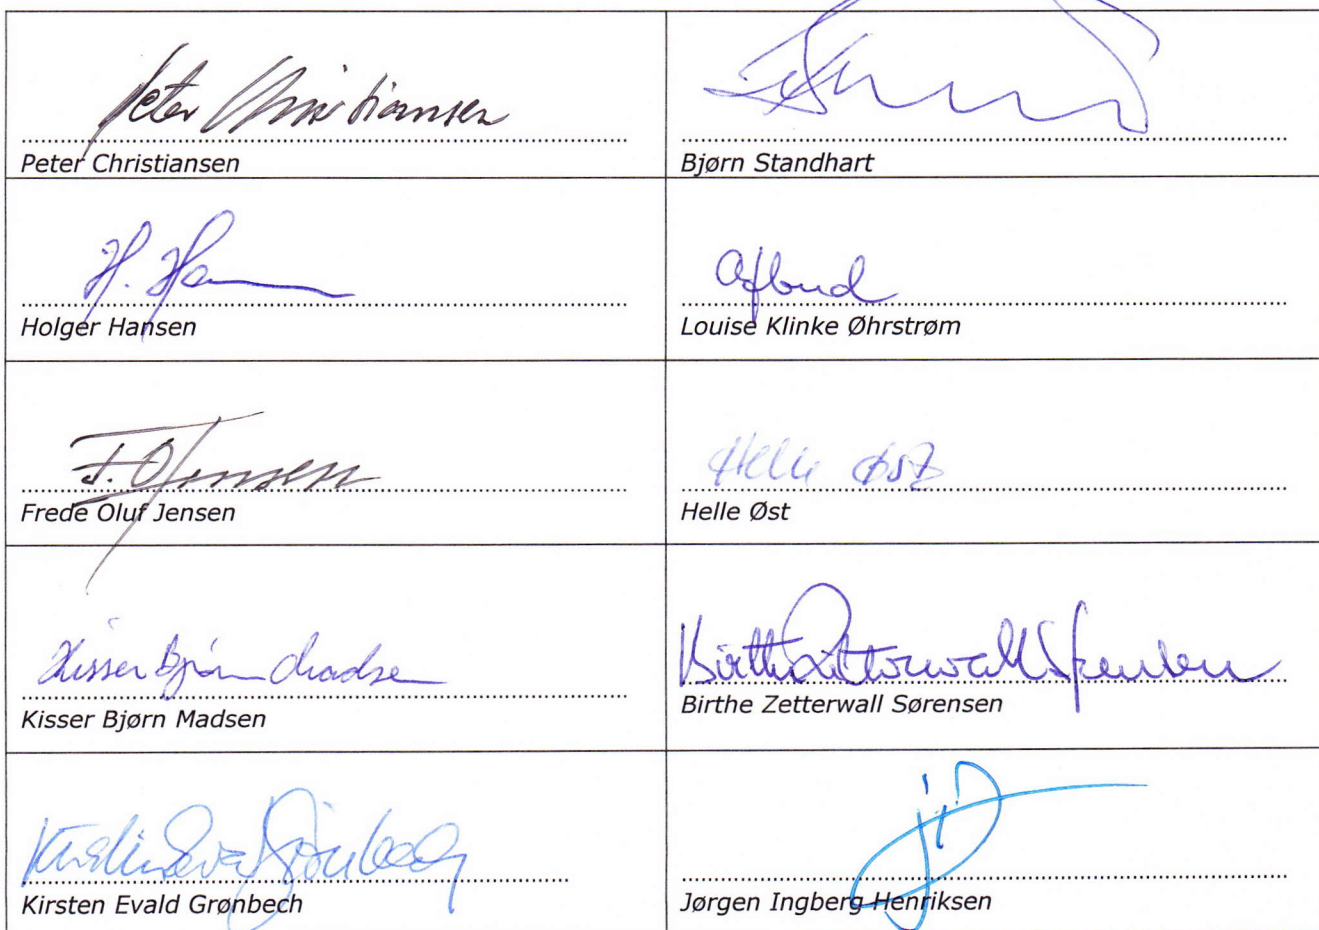 Peter Christiansen
Peter Christiansen
Bjørn Standhart
H. Han
Holger Hansen
Afbud
Louise Klinke Øhrstrøm
F.O Jensen
Frede Oluf Jensen
Helle Øst
Helle Øst
Kisser Bjørn Madsen
Kisser Bjørn Madsen
Birthe Zetterwall Sørensen
Birthe Zetterwall Sørensen
Kirsten Evald Grønbech
Kirsten Evald Grønbech
Jørgen Ingberg Henriksen